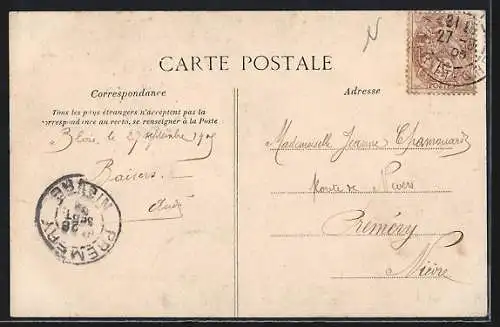 CARTE POSTALE
Correspondance
Tous les pays étrangers n'acceptent pas la
correspondance au recto, se renseigner à la Poste
Blois, le 27 septembre 1905
Baisers
Adresse
Mademoiselle Jeanne
Route de Nevers
Prémery
Nièvre
PREMERY
NIEVRE
28
27